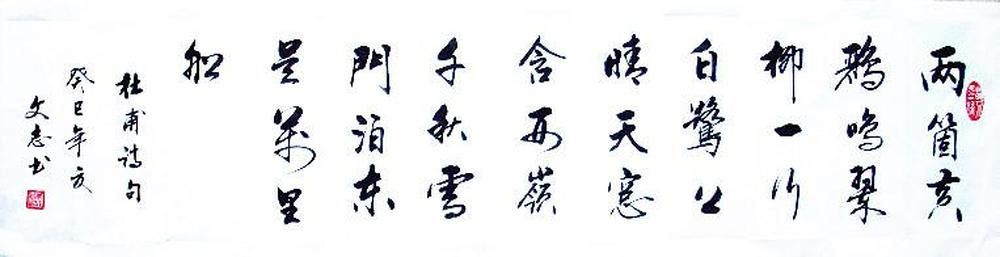 两箇黄
鸝鳴翠
柳一行
白鷺上
晴天窓
含西嶺
千秋雪
門泊東
吴萬里
船
杜甫诗句
癸巳年夏
文志书